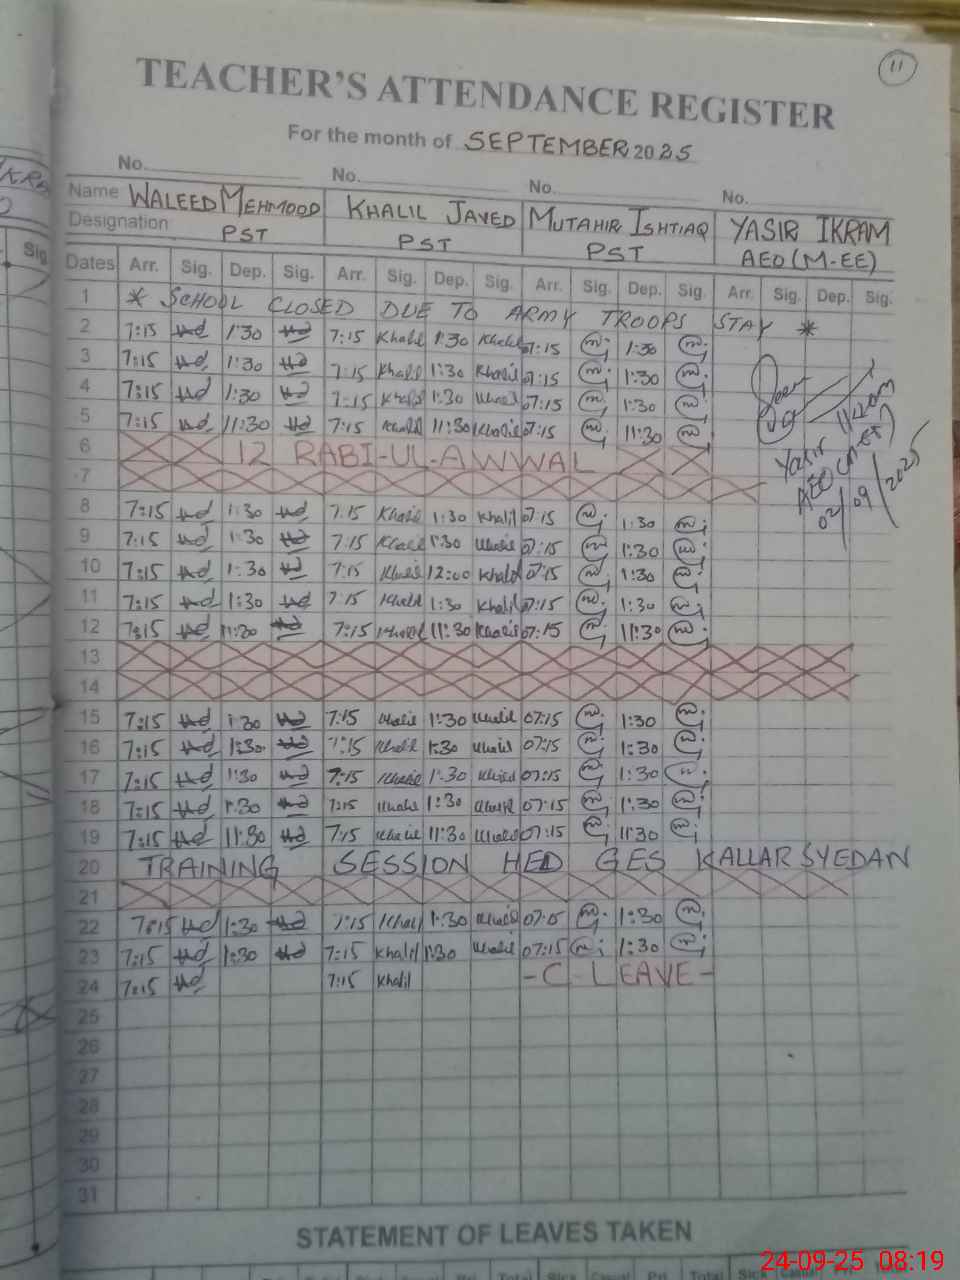 11
TEACHER'S ATTENDANCE REGISTER
For the month of SEPTEMBER 2025
No. No. No. No.
Name WALEED MEHMOOD KHALIL JAVED MUTAHIR ISHTIAQ YASIR IKRAM
Designation PST PST PST AEO (M-EE)
Sig.
Dates Arr. Sig. Dep. Sig. Arr. Sig. Dep. Sig. Arr. Sig. Dep. Sig. Arr. Sig. Dep. Sig.
1 * SCHOOL CLOSED DUE TO ARMY TROOPS STAY *
2 7:15 1:30 7:15 Khalil 1:30 Khalil 07:15 1:30
3 7:15 1:30 7:15 Khalil 1:30 Khalil 07:15 1:30
4 7:15 1:30 7:15 Khalil 1:30 Khalil 07:15 1:30
5 7:15 11:30 7:15 Khalil 11:30 Khalil 07:15 11:30
11:20am
Yasir
AEO
02/09/2025
6 12 RABI-UL-AWWAL
7
8 7:15 1:30 7:15 Khalil 1:30 Khalil 07:15 1:30
9 7:15 1:30 7:15 Khalil 1:30 Khalil 07:15 1:30
10 7:15 1:30 7:15 Khalil 12:00 Khalil 07:15 1:30
11 7:15 1:30 7:15 Khalil 1:30 Khalil 07:15 1:30
12 7:15 11:30 7:15 Khalil 11:30 Khalil 07:15 11:30
13
14
15 7:15 1:30 7:15 Khalil 1:30 Khalil 07:15 1:30
16 7:15 1:30 7:15 Khalil 1:30 Khalil 07:15 1:30
17 7:15 1:30 7:15 Khalil 1:30 Khalil 07:15 1:30
18 7:15 1:30 7:15 Khalil 1:30 Khalil 07:15 1:30
19 7:15 11:30 7:15 Khalil 11:30 Khalil 07:15 11:30
20 TRAINING SESSION HED GES KALLAR SYEDAN
21
22 7:15 1:30 7:15 Khalil 1:30 Khalil 07:15 1:30
23 7:15 1:30 7:15 Khalil 1:30 Khalil 07:15 1:30
24 7:15 7:15 Khalil -C LEAVE-
25
26
27
28
29
30
31
STATEMENT OF LEAVES TAKEN
24-09-25 08:19